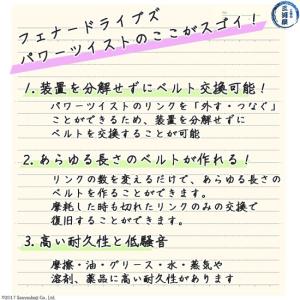 三河屋
フェナードライブズ
パワーツイストのここがスゴイ！
1. 装置を分解せずにベルト交換可能！
パワーツイストのリンクを「外す・つなぐ」
ことができるため、装置を分解せずに
ベルトを交換することが可能
2. あらゆる長さのベルトが作れる！
リンクの数を変えるだけで、あらゆる長さの
ベルトを作ることができます。
摩耗した時も切れたリンクのみの交換で
復旧することができます。
3. 高い耐久性と低騒音
摩擦・油・グリース・水・蒸気や
溶剤、薬品に高い耐久性があります
©2017 Sanyodoji Co., Ltd.